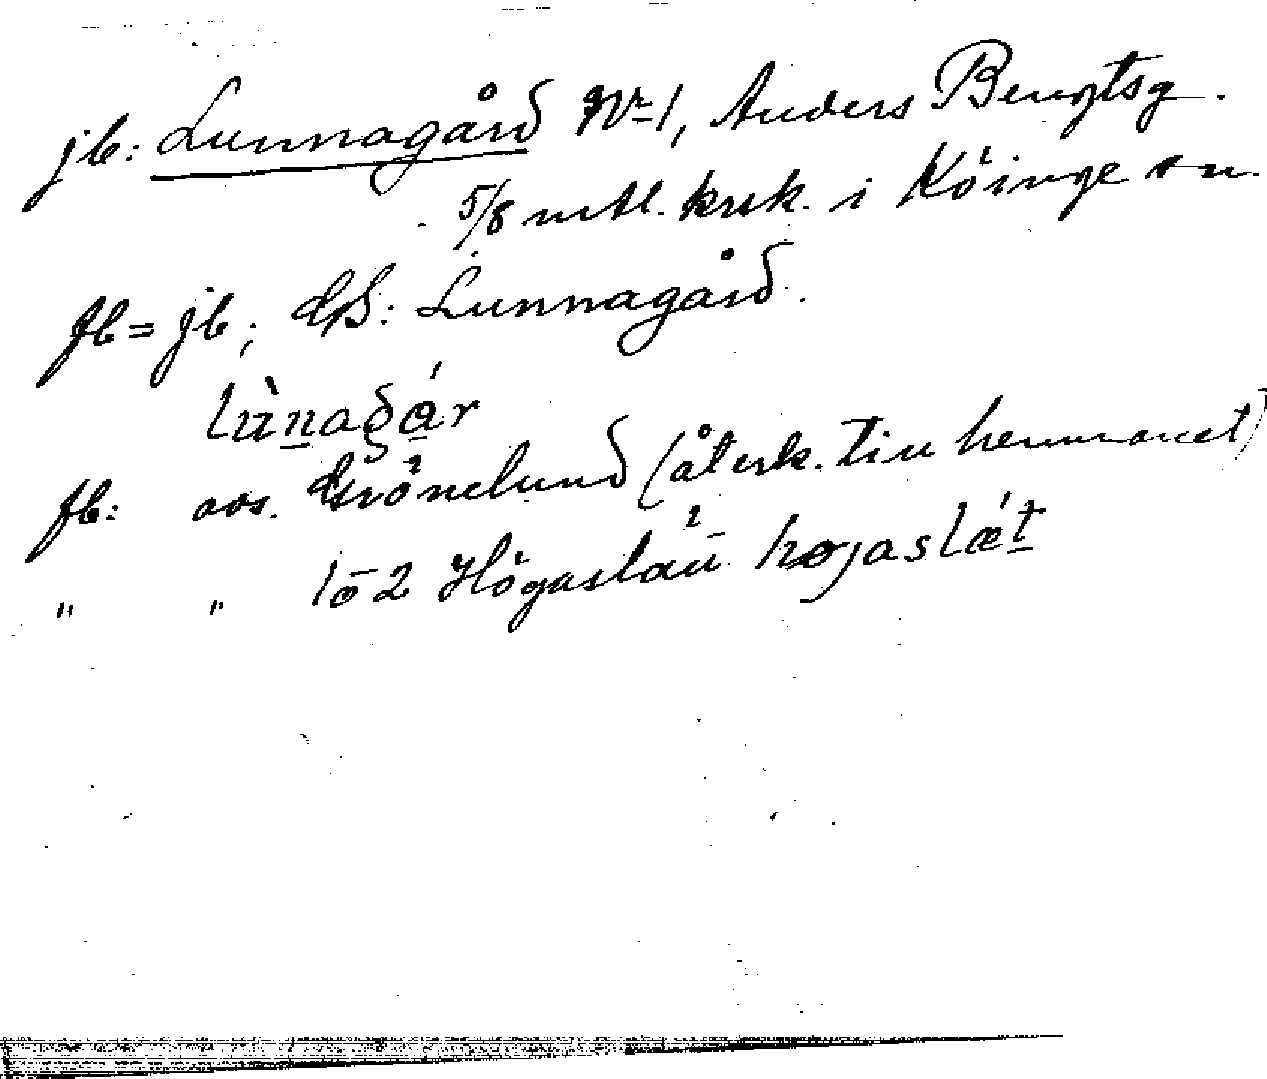 jb: Lunnagård Nr 1, Anders Bengtsg.
5/8 mtl. krsk. i Köinge sn.
fb = jb; GS: Lunnagård.
fb: avs. Grönelund (återk. till hemmanet)
" " lö 2 Högaslätt